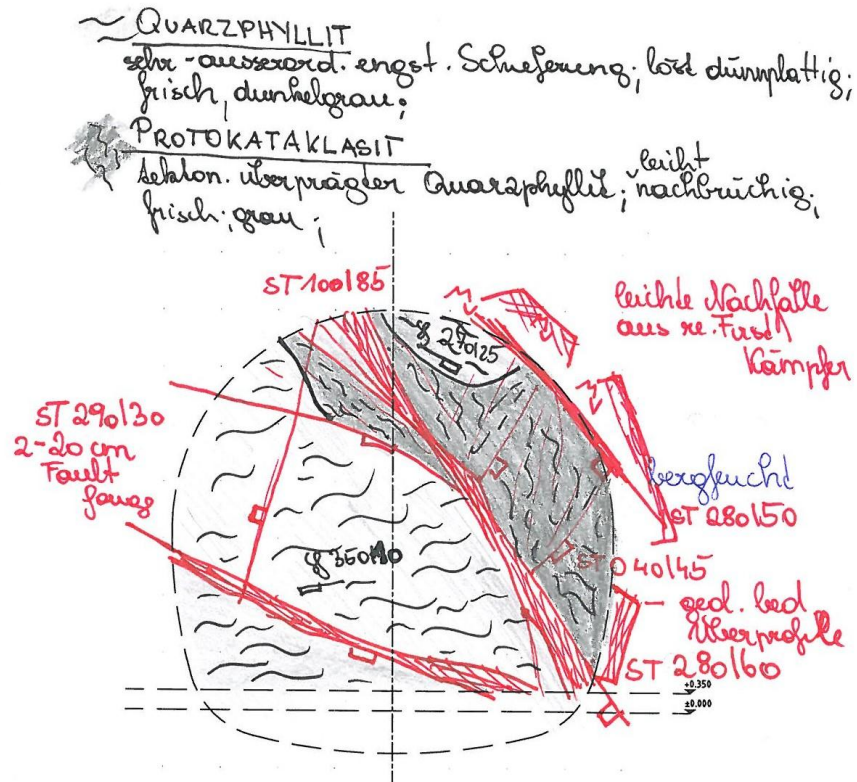 QUARZPHYLLIT
sehr - ausserord. engst. Schieferung; löst dünnplattig;
frisch, dunkelgrau;
PROTOKATAKLASIT
tekton. überprägter Quarzphyllit; leicht nachbrüchig;
frisch; grau;
ST 100/85
leichte Nachfälle
aus re. First
Kämpfer
270/25
ST 290/30
2-20 cm
Fault
bergfeucht
ST 280/50
350/10
ST 040/45
geol. bed
Überprofile
ST 280/60
+0.350
±0.000